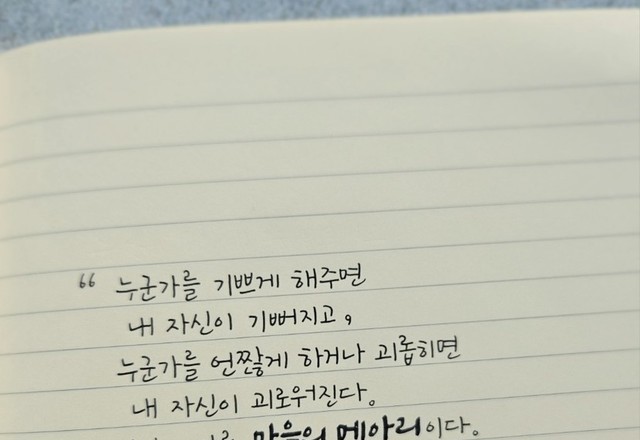 “ 누군가를 기쁘게 해주면
내 자신이 기뻐지고,
누군가를 언짢게 하거나 괴롭히면
내 자신이 괴로워진다.
마음의 메아리이다.